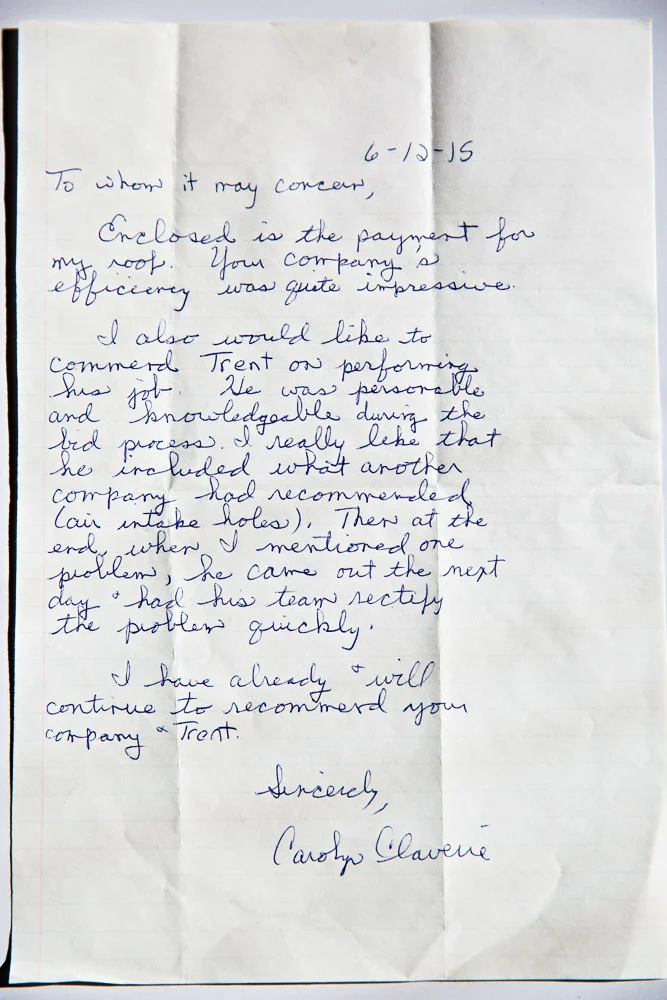 6-12-15
To whom it may concern,
Enclosed is the payment for
my roof. Your company's
efficiency was quite impressive.
I also would like to
commend Trent on performing
his job. He was personable
and knowledgeable during the
bid process. I really like that
he included what another
company had recommended
(air intake holes). Then at the
end, when I mentioned one
problem, he came out the next
day & had his team rectify
the problem quickly.
I have already & will
continue to recommend your
company & Trent.
Sincerely,
Carolyn Claverie